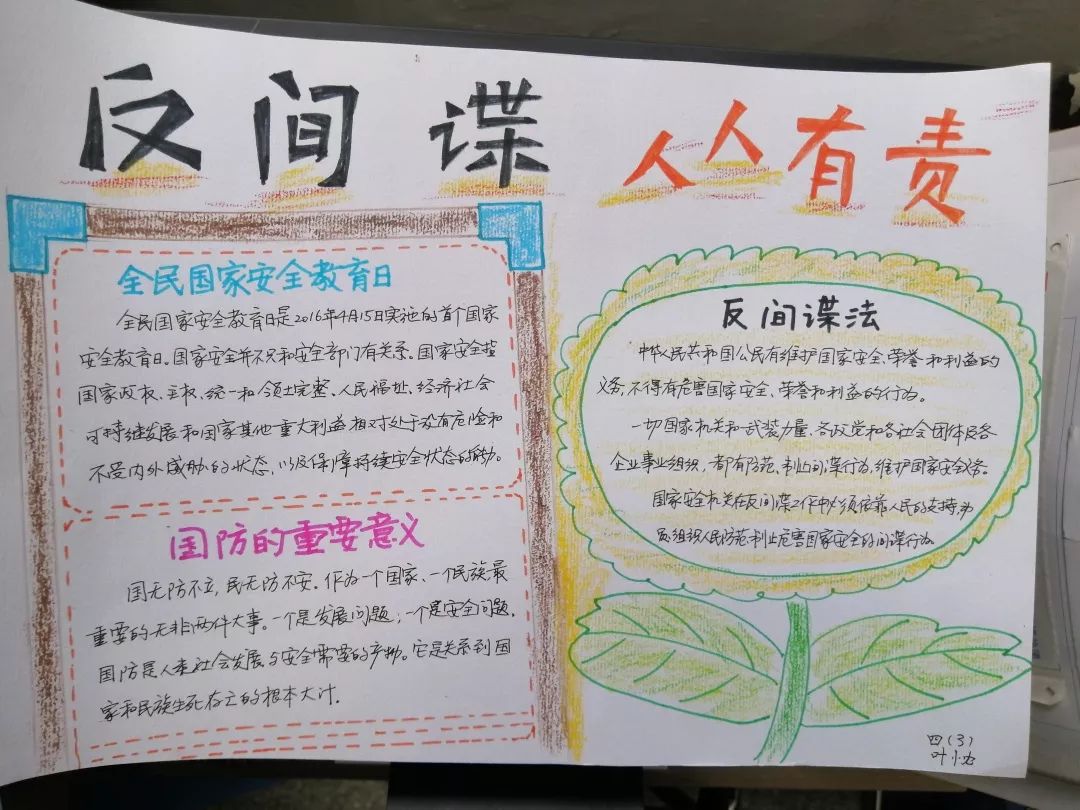 反间谍 人人有责
全民国家安全教育日
全民国家安全教育日是2016年4月15日实施的首个国家
安全教育日。国家安全并不只和安全部门有关系。国家安全指
国家政权、主权、统一和领土完整、人民福祉、经济社会
可持续发展和国家其他重大利益相对处于没有危险和
不受内外威胁的状态,以及保障持续安全状态的能力。
国防的重要意义
国无防不立,民无防不安。作为一个国家、一个民族最
重要的无非两件大事。一个是发展问题;一个是安全问题,
国防是人类社会发展与安全需要的产物。它是关系到国
家和民族生死存亡的根本大计。
反间谍法
中华人民共和国公民有维护国家安全、荣誉和利益的
义务,不得有危害国家安全、荣誉和利益的行为。
一切国家机关和武装力量、各政党和各社会团体及各
企业事业组织,都有防范、制止间谍行为,维护国家安全义务。
国家安全机关在反间谍工作中必须依靠人民的支持,动
员组织人民防范制止危害国家安全的间谍行为
四(3)
叶